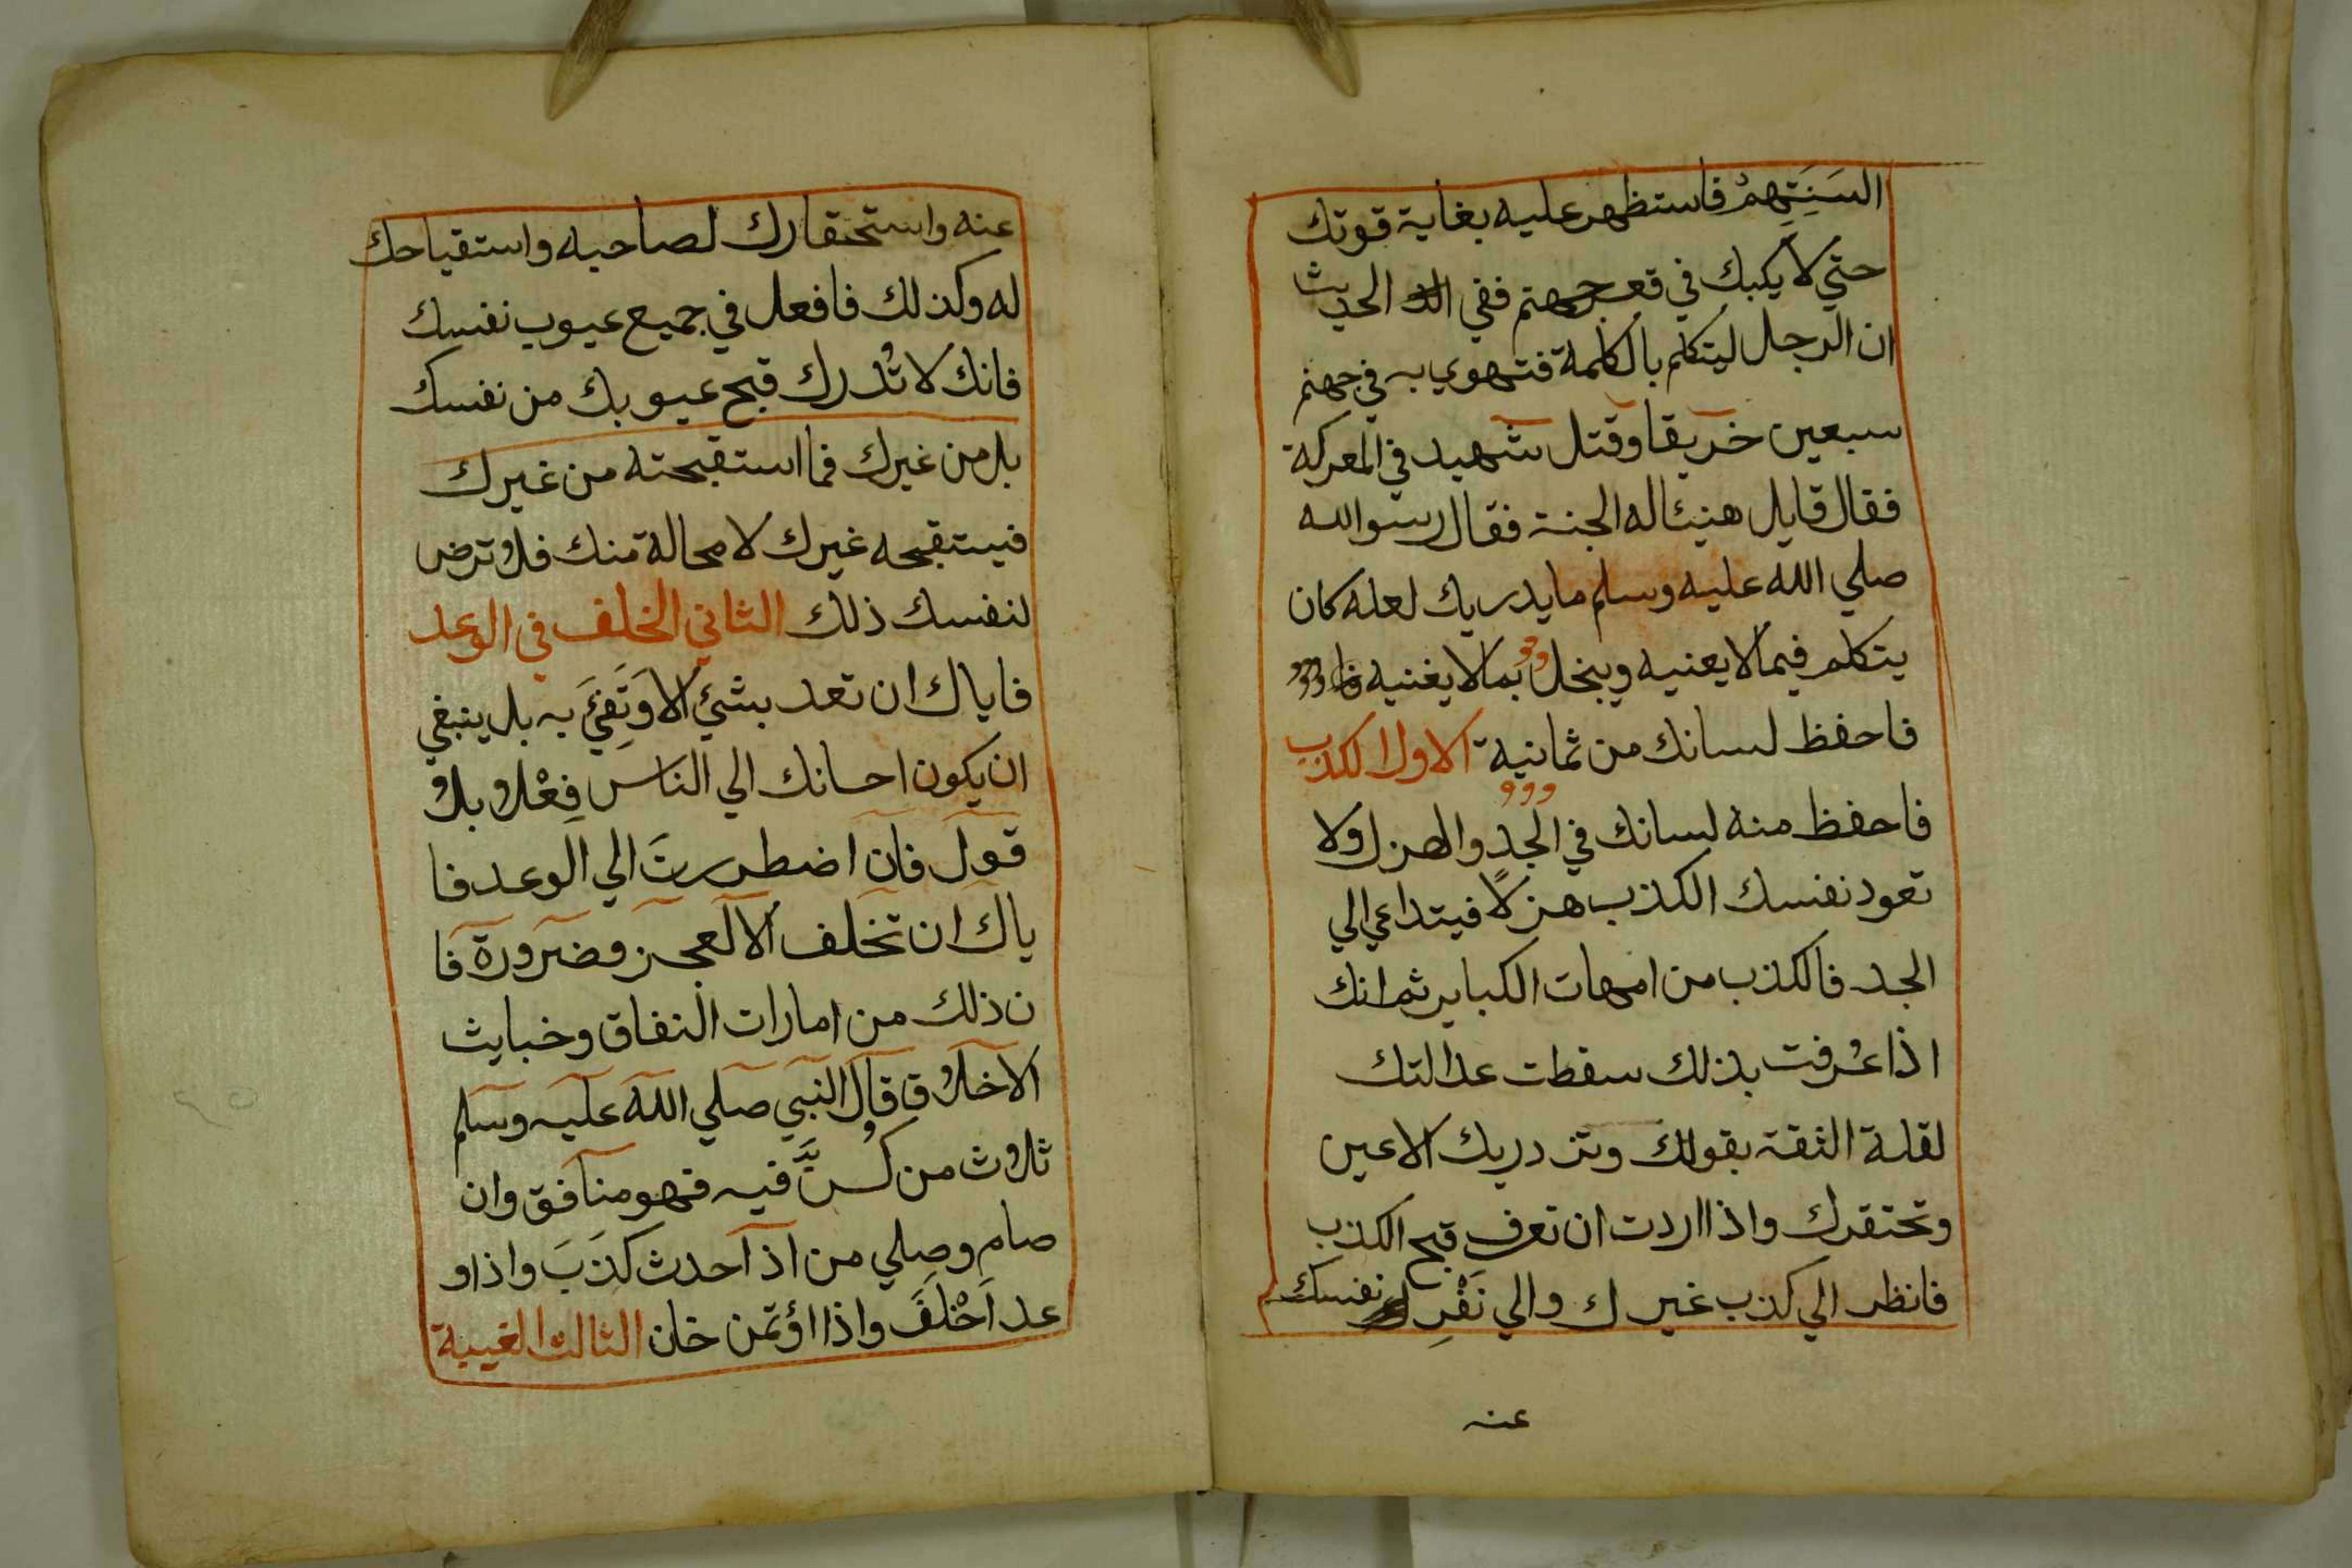 السَنَتِهِمْ فاستظهر عليه بغاية قوتك
حتي لا يكبك في قعر جهنم ففي الحديث
ان الرجل ليتكلم بالكلمة فتهوي به في جهنم
سبعين خريقا وقتل شهيد في المعركة
فقال قايل هنيئا له الجنة فقال رسوالله
صلي الله عليه وسلم ما يدريك لعله كان
يتكلم فيما لا يعنيه ويبخل بما لا يغنيه
فاحفظ لسانك من ثمانية الاول الكذب
فاحفظ منه لسانك في الجدِ والهزل ولا
تعود نفسك الكذب هزلًا فيتداعي الي
الجد فالكذب من امهات الكباير ثم انك
اذا عُرفت بذلك سقطت عدالتك
لقلة الثقة بقولك وتزدريك الاعين
وتحتقرك واذا اردت ان تعرف قبح الكذب
فانظر الي كذب غيرك والي نَفْرِ نفسك
عنه
عنه واستحقارك لصاحبه واستقياحك
له وكذلك فافعل في جميع عيوب نفسك
فانك لا تُدرك قبح عيوبك من نفسك
بل من غيرك فما استقبحته من غيرك
فيستقبحه غيرك لا محالة منك فلا ترض
لنفسك ذلك الثاني الخلف في الوعد
فاياك ان تعد بشئ الا وَتَفِيَ به بل ينبغي
ان يكون احسانك الي الناس فِعْلا بلا
قول فان اضطررتَ الي الوعد فا
ياك ان تخلف الا لعجز وضرورة فا
ن ذلك من امارات النفاق وخبايث
الاخلاق قال النبي صلي الله عليه وسلم
ثلاث من كُنَّ فيه فهو منافق وان
صام وصلي من اذا حدث كَذَبَ واذا و
عد اَخْلَفَ واذا اؤتمن خان الثالث الغيبة